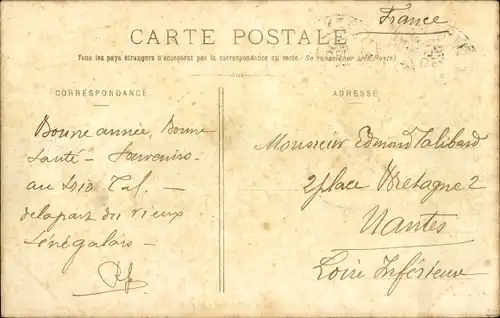 France
CARTE POSTALE
Tous les pays étrangers n'acceptent pas la correspondance au recto (Se renseigner à la Poste)
CORRESPONDANCE
ADRESSE
Bonne année, Bonne
Santé – Souvenirs
au trio Tal. –
de la part du vieux
Sénégalais –
Monsieur Edmond Talibard
2 place Bretagne 2
Nantes
Loire Inférieure